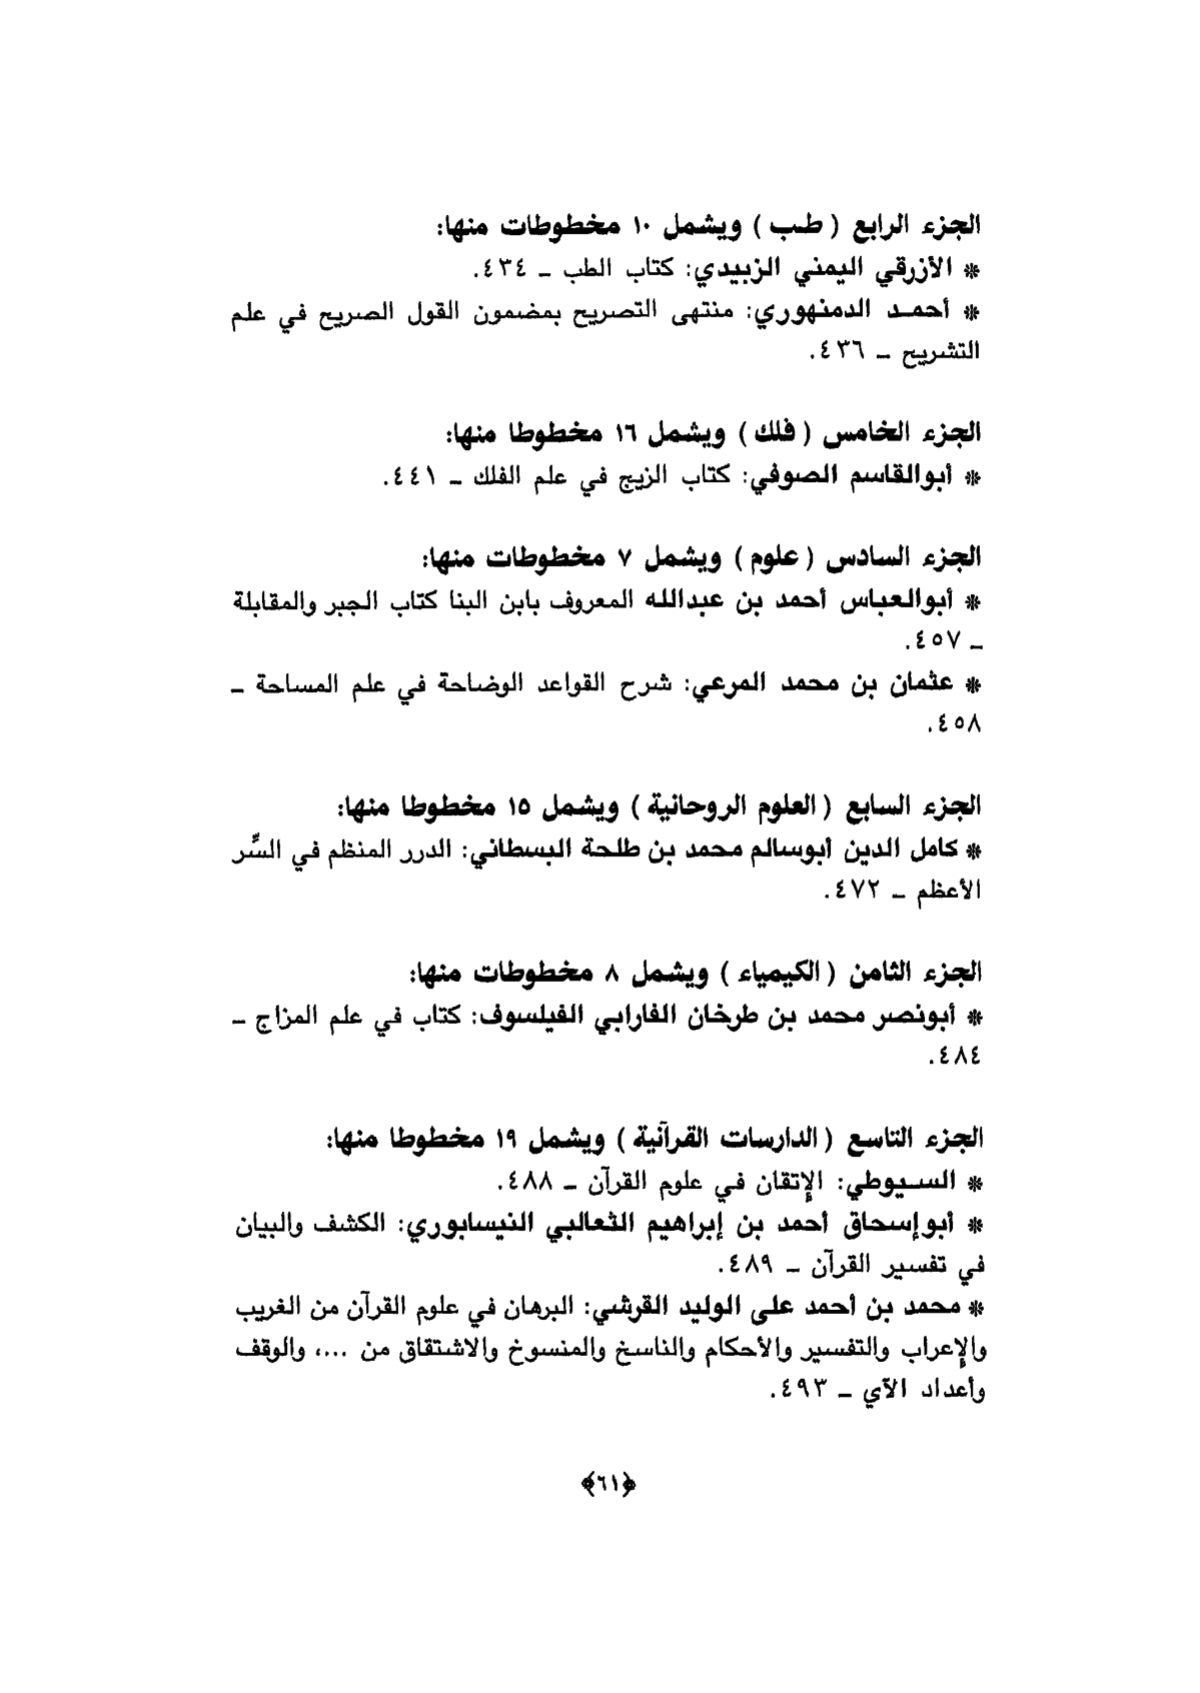 الجزء الرابع ( طب ) ويشمل ١٠ مخطوطات منها:
* الأزرقي اليمني الزبيدي: كتاب الطب ـ ٤٣٤.
* أحمد الدمنهوري: منتهى التصريح بمضمون القول الصريح في علم
التشريح ـ ٤٣٦.
الجزء الخامس ( فلك ) ويشمل ١٦ مخطوطا منها:
* أبوالقاسم الصوفي: كتاب الزيج في علم الفلك ـ ٤٤١.
الجزء السادس ( علوم ) ويشمل ٧ مخطوطات منها:
* أبوالعباس أحمد بن عبدالله المعروف بابن البنا كتاب الجبر والمقابلة
ـ ٤٥٧.
* عثمان بن محمد المرعي: شرح القواعد الوضاحة في علم المساحة ـ
٤٥٨.
الجزء السابع ( العلوم الروحانية ) ويشمل ١٥ مخطوطا منها:
* كامل الدين أبوسالم محمد بن طلحة البسطاني: الدرر المنظم في السِّر
الأعظم ـ ٤٧٢.
الجزء الثامن ( الكيمياء ) ويشمل ٨ مخطوطات منها:
* أبونصر محمد بن طرخان الفارابي الفيلسوف: كتاب في علم المزاج ـ
٤٨٤.
الجزء التاسع ( الدارسات القرآنية ) ويشمل ١٩ مخطوطا منها:
* السيوطي: الإتقان في علوم القرآن ـ ٤٨٨.
* أبوإسحاق أحمد بن إبراهيم الثعالبي النيسابوري: الكشف والبيان
في تفسير القرآن ـ ٤٨٩.
* محمد بن أحمد على الوليد القرشي: البرهان في علوم القرآن من الغريب
والإعراب والتفسير والأحكام والناسخ والمنسوخ والاشتقاق من ...، والوقف
وأعداد الآي ـ ٤٩٣.
﴿٦١﴾